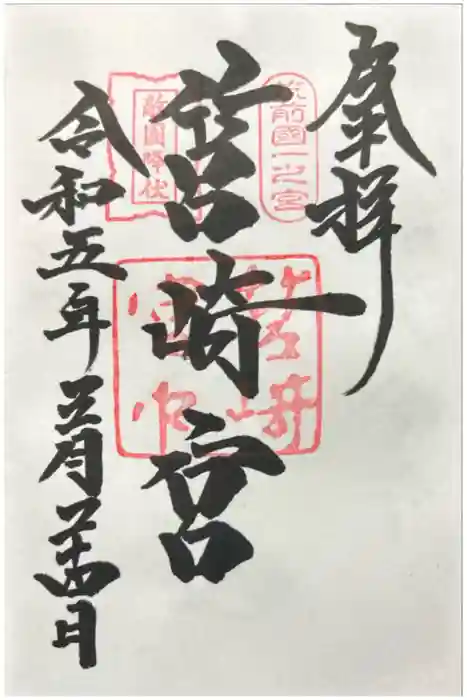 奉拝
筑前國一之宮
筥崎宮
敵國降伏
令和五年三月二十四日